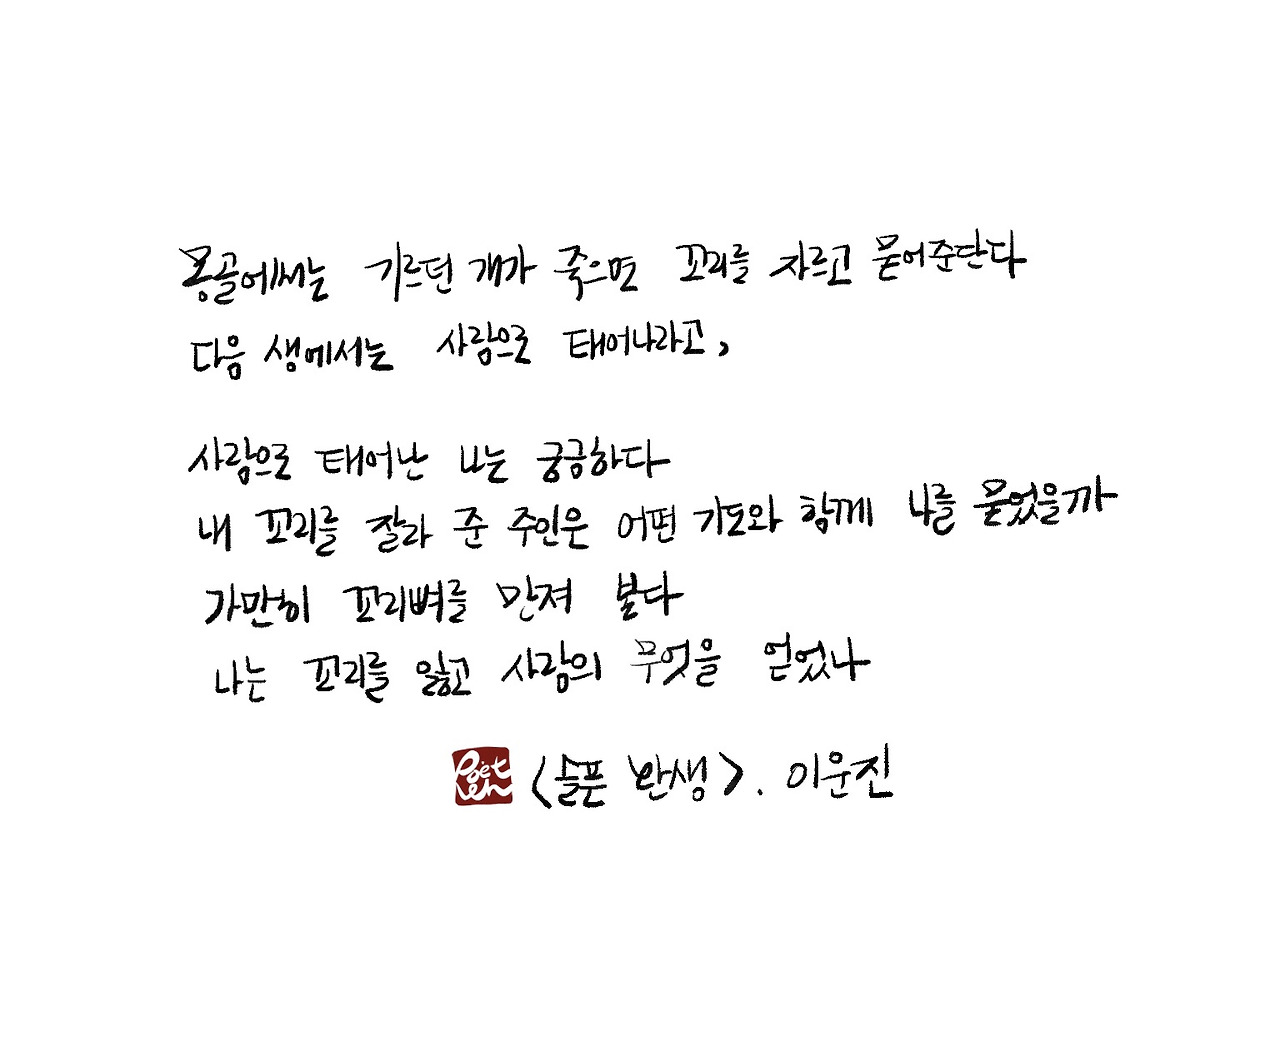 몽골에서는 기르던 개가 죽으면 꼬리를 자르고 묻어준단다
다음 생에서는 사람으로 태어나라고,
사람으로 태어난 나는 궁금하다
내 꼬리를 잘라 준 주인은 어떤 기도와 함께 나를 묻었을까
가만히 꼬리뼈를 만져 본다
나는 꼬리를 잃고 사람의 무엇을 얻었나
Poet
<슬픈 환생>. 이운진